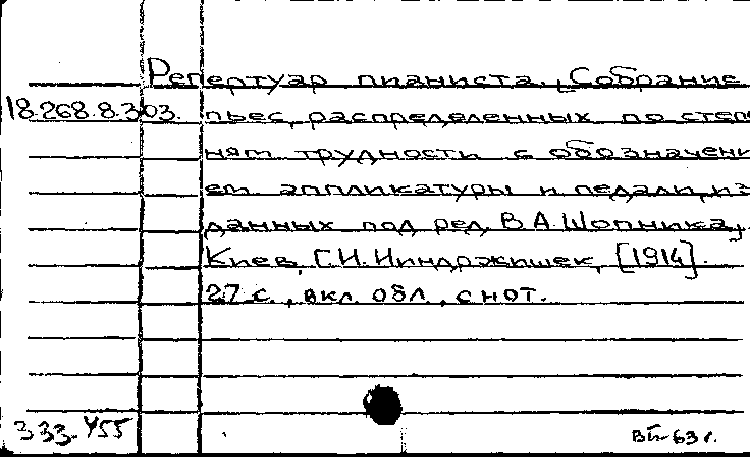 Репертуар пианиста. [Собрание
18.268.8.303. пьес, распределенных по степе
ням трудности с обозначени
ем аппликатуры и педали, из
данных под ред. В.А. Шопника].
Киев, Г.И. Ииндржишек, [1914].
27 с., вкл. обл., с нот.
333-455
63 г.